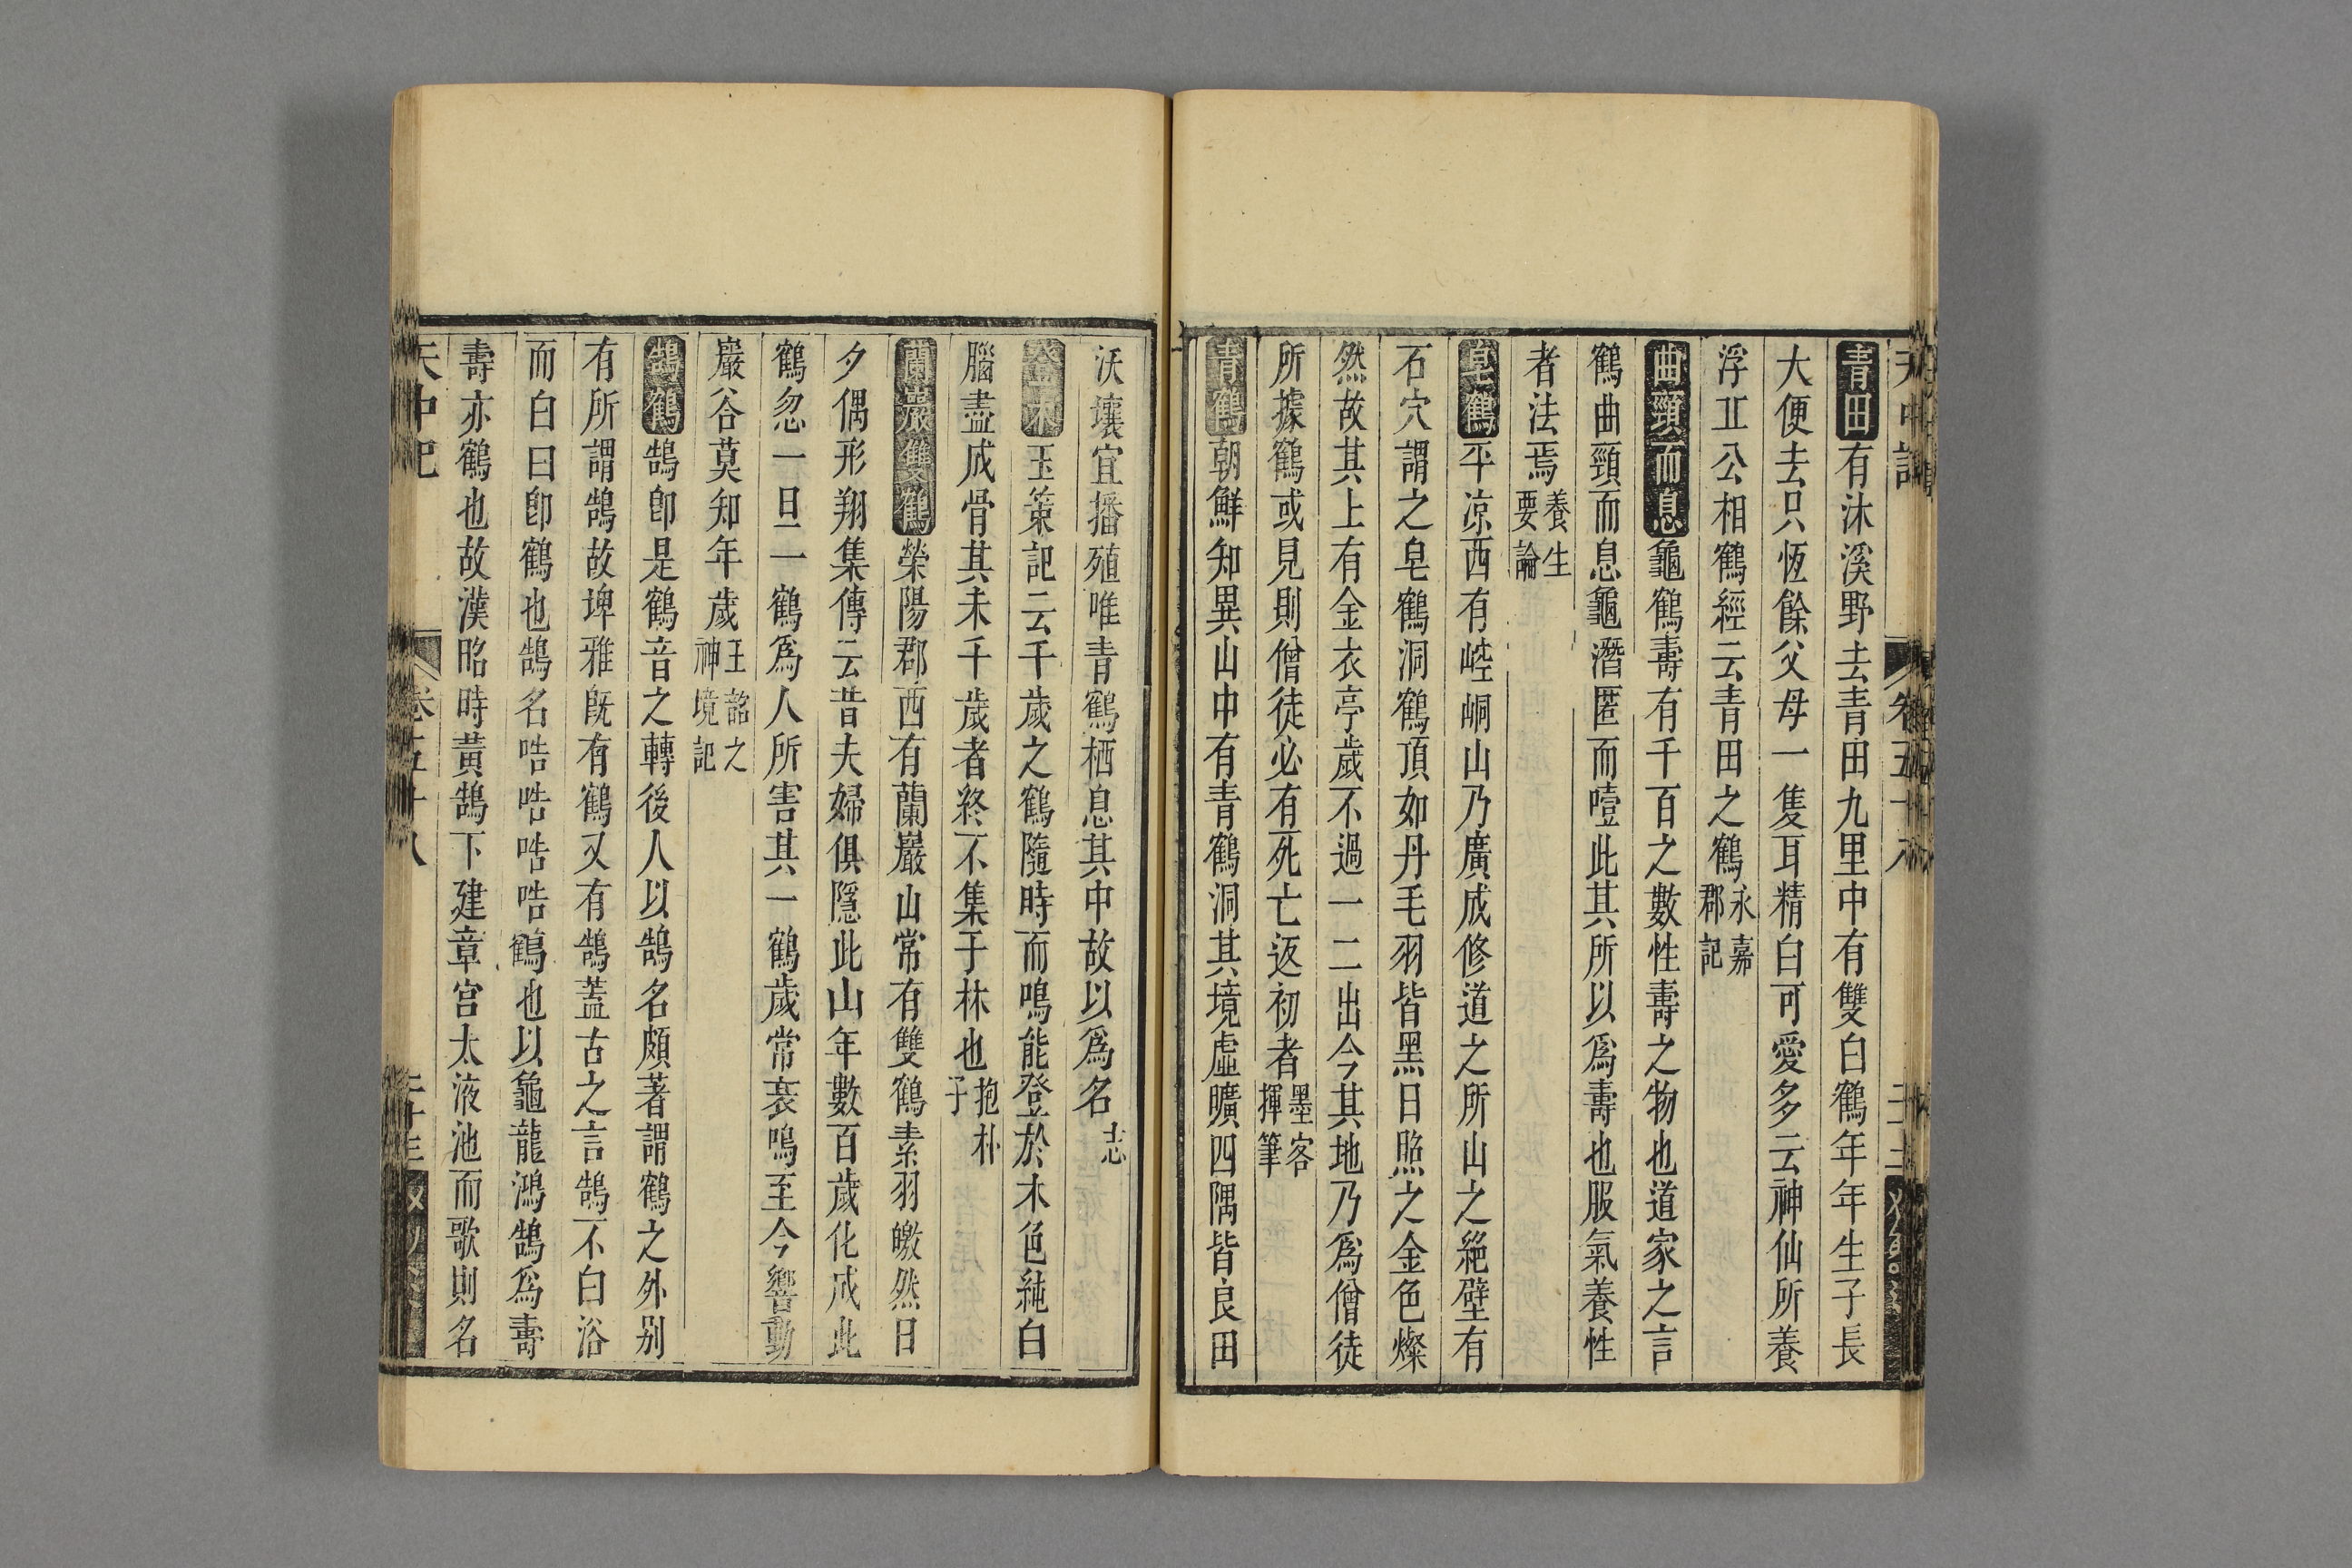 天中記 卷五十八
青田有沐溪野去青田九里中有雙白鶴年年生子長
大便去只恆餘父母一隻耳精白可愛多云神仙所養
浮丘公相鶴經云青田之鶴永嘉郡記
曲頸而息龜鶴壽有千百之數性壽之物也道家之言
鶴曲頸而息龜潛匿而噎此其所以爲壽也服氣養性
者法焉養生要論
皂鶴平涼西有崆峒山乃廣成修道之所山之絶壁有
石穴謂之皂鶴洞鶴頂如丹毛羽皆黑日照之金色燦
然故其上有金衣亭歲不過一二出今其地乃爲僧徒
所據鶴或見則僧徒必有死亡返初者墨客揮筆
青鶴朝鮮知異山中有青鶴洞其境虛曠四隅皆良田
沃壤宜播殖唯青鶴栖息其中故以爲名志
登木玉策記云千歲之鶴隨時而鳴能登於木色純白
腦盡成骨其未千歲者終不集于林也抱朴子
蘭巖雙鶴榮陽郡西有蘭巖山常有雙鶴素羽皦然日
夕偶形翔集傳云昔夫婦俱隱此山年數百歲化成此
鶴忽一旦一鶴爲人所害其一鶴歲常哀鳴至今響動
巖谷莫知年歲王韶之神境記
鵠鶴鵠卽是鶴音之轉後人以鵠名頗著謂鶴之外别
有所謂鵠故埤雅旣有鶴又有鵠蓋古之言鵠不白浴
而白曰卽鶴也鵠名哠哠哠哠鶴也以龜龍鴻鵠爲壽
壽亦鶴也故漢昭時黃鵠下建章宫太液池而歌則名
天中記 卷五十八